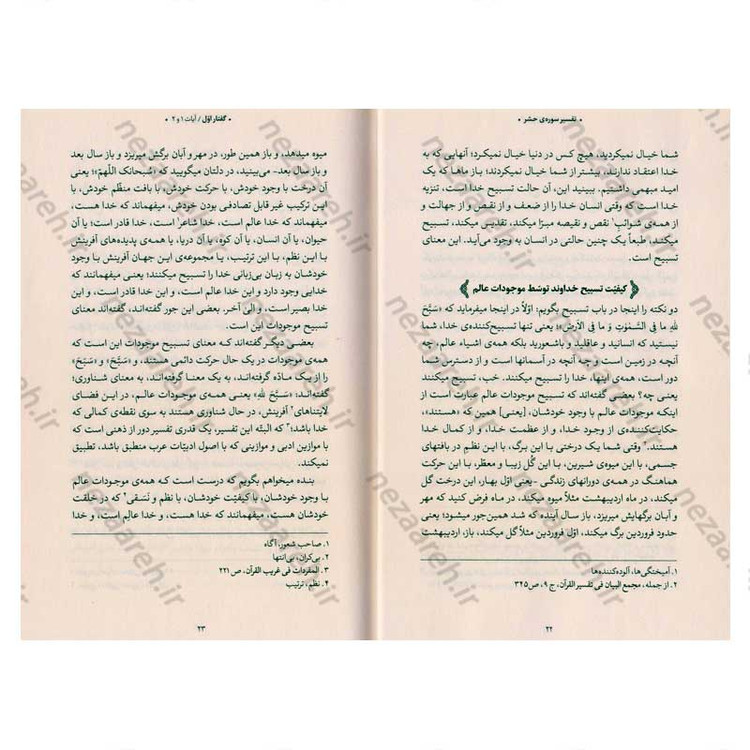 • تفسیر سوره‌ی حشر •
شما خیال نمیکردید، هیچ کس در دنیا خیال نمیکرد؛ آنهایی که به
خدا اعتقاد ندارند، بیشتر از شما خیال نمیکردند؛ باز ماها که یک
امید مبهمی داشتیم. ببینید، این آن حالت تسبیح خدا است، تنزیه
خدا است که وقتی انسان خدا را از ضعف و از نقص و از جهالت و
از همه‌ی شوائب¹ نقص و نقیصه مبرّا میکند، تقدیس میکند، تنزیه
میکند، طبعاً یک چنین حالتی در انسان به وجود می‌آید. این معنای
تسبیح است.
کیفیّت تسبیح خداوند توسّط موجودات عالم
دو نکته را اینجا در باب تسبیح بگویم: اوّلاً در اینجا میفرماید که «سَبَّحَ
لِلهِ ما فِی السَّمٰوٰتِ وَ ما فِی الاَرضِ»؛ یعنی تنها تسبیح‌کننده‌ی خدا، شما
نیستید که انسانید و عاقلید و باشعورید بلکه همه‌ی اشیاء عالم، چه
آنچه در زمین است و چه آنچه در آسمانها است و از دسترس شما
دور است، همه‌ی اینها، خدا را تسبیح میکنند. خب، تسبیح میکنند
یعنی چه؟ بعضی گفته‌اند که تسبیح موجودات عالم عبارت است از
اینکه موجودات عالم با وجود خودشان، [یعنی] همین که «هستند»،
حکایت‌کننده‌ی از وجود خدا، و از عظمت خدا، و از کمال خدا
هستند.² وقتی شما یک درختی با این برگ، با این نظم در بافتهای
جسمی، با این میوه‌ی شیرین، با این گُل زیبا و معطّر، با این حرکت
هماهنگ در همه‌ی دورانهای زندگی -یعنی اوّل بهار، این درخت گل
میکند، در ماه اردیبهشت مثلاً میوه میکند، در ماه فرض کنید که مهر
و آبان برگهایش میریزد، باز سال آینده که شد همین‌جور میشود؛ یعنی
حدود فروردین برگ میکند، اوّل فروردین مثلاً گل میکند، باز، اردیبهشت
۱. آمیختگی‌ها، آلوده‌کننده‌ها
۲. از جمله، مجمع البیان فی تفسیر القرآن، ج ۹، ص ۳۴۵
۲۲
• گفتار اوّل / آیات ۱ و ۲ •
میوه میدهد، و باز همین طور، در مهر و آبان برگش میریزد و باز سال بعد
و باز سال بعد- می‌بینید، در دلتان میگویید که «سُبحانَکَ اللّهُمّ»؛ یعنی
آن درخت با وجود خودش، با حرکت خودش، با بافت منظّم خودش، با
این ترکیب غیر قابل تصادفی بودن خودش، میفهماند که خدا هست،
میفهماند که خدا عالم است، خدا شاعر¹ است، خدا قادر است؛ یا آن
حیوان، یا آن انسان، یا آن کوه، یا آن دریا، یا همه‌ی پدیده‌های آفرینش
با این نظم، با این ترتیب، یا مجموعه‌ی این جهان آفرینش با وجود
خودشان به زبان بی‌زبانی خدا را تسبیح میکنند؛ یعنی میفهمانند که
خدایی وجود دارد و این خدا قادر است، و این خدا عالم است، و این
خدا بصیر است، و الی آخر. بعضی این جور گفته‌اند، گفته‌اند معنای
تسبیح موجودات این است.
بعضی دیگر گفته‌اند که معنای تسبیح موجودات این است که
همه‌ی موجودات در یک حال حرکت دائمی هستند، و «سَبَّحَ» و «سَبَحَ»
را از یک مادّه گرفته‌اند، به یک معنا گرفته‌اند، به معنای شناوری؛
گفته‌اند: «سَبَّحَ لِلهِ» یعنی همه‌ی موجودات عالم، در این فضای
لایتناهای² آفرینش، در حال شناوری هستند به سوی نقطه‌ی کمالی که
خدا باشد؛³ که البتّه این تفسیر، یک قدری تفسیر دور از ذهنی است که
با موازین ادبی و موازینی که با اصول ادبیّات عرب منطبق باشد، تطبیق
نمیکند.
بنده میخواهم بگویم که درست است که همه‌ی موجودات عالم
با وجود خودشان، با کیفیّت خودشان، با نظم و نَسَقی⁴ که در خلقت
خودشان هست، میفهمانند که خدا هست، و خدا عالم است، و خدا
۱. صاحب شعور، آگاه
۲. بی‌کران، بی‌انتها
۳. المفردات فی غریب القرآن، ص ۲۲۱
۴. نظم، ترتیب
۲۳
nezaareh.ir